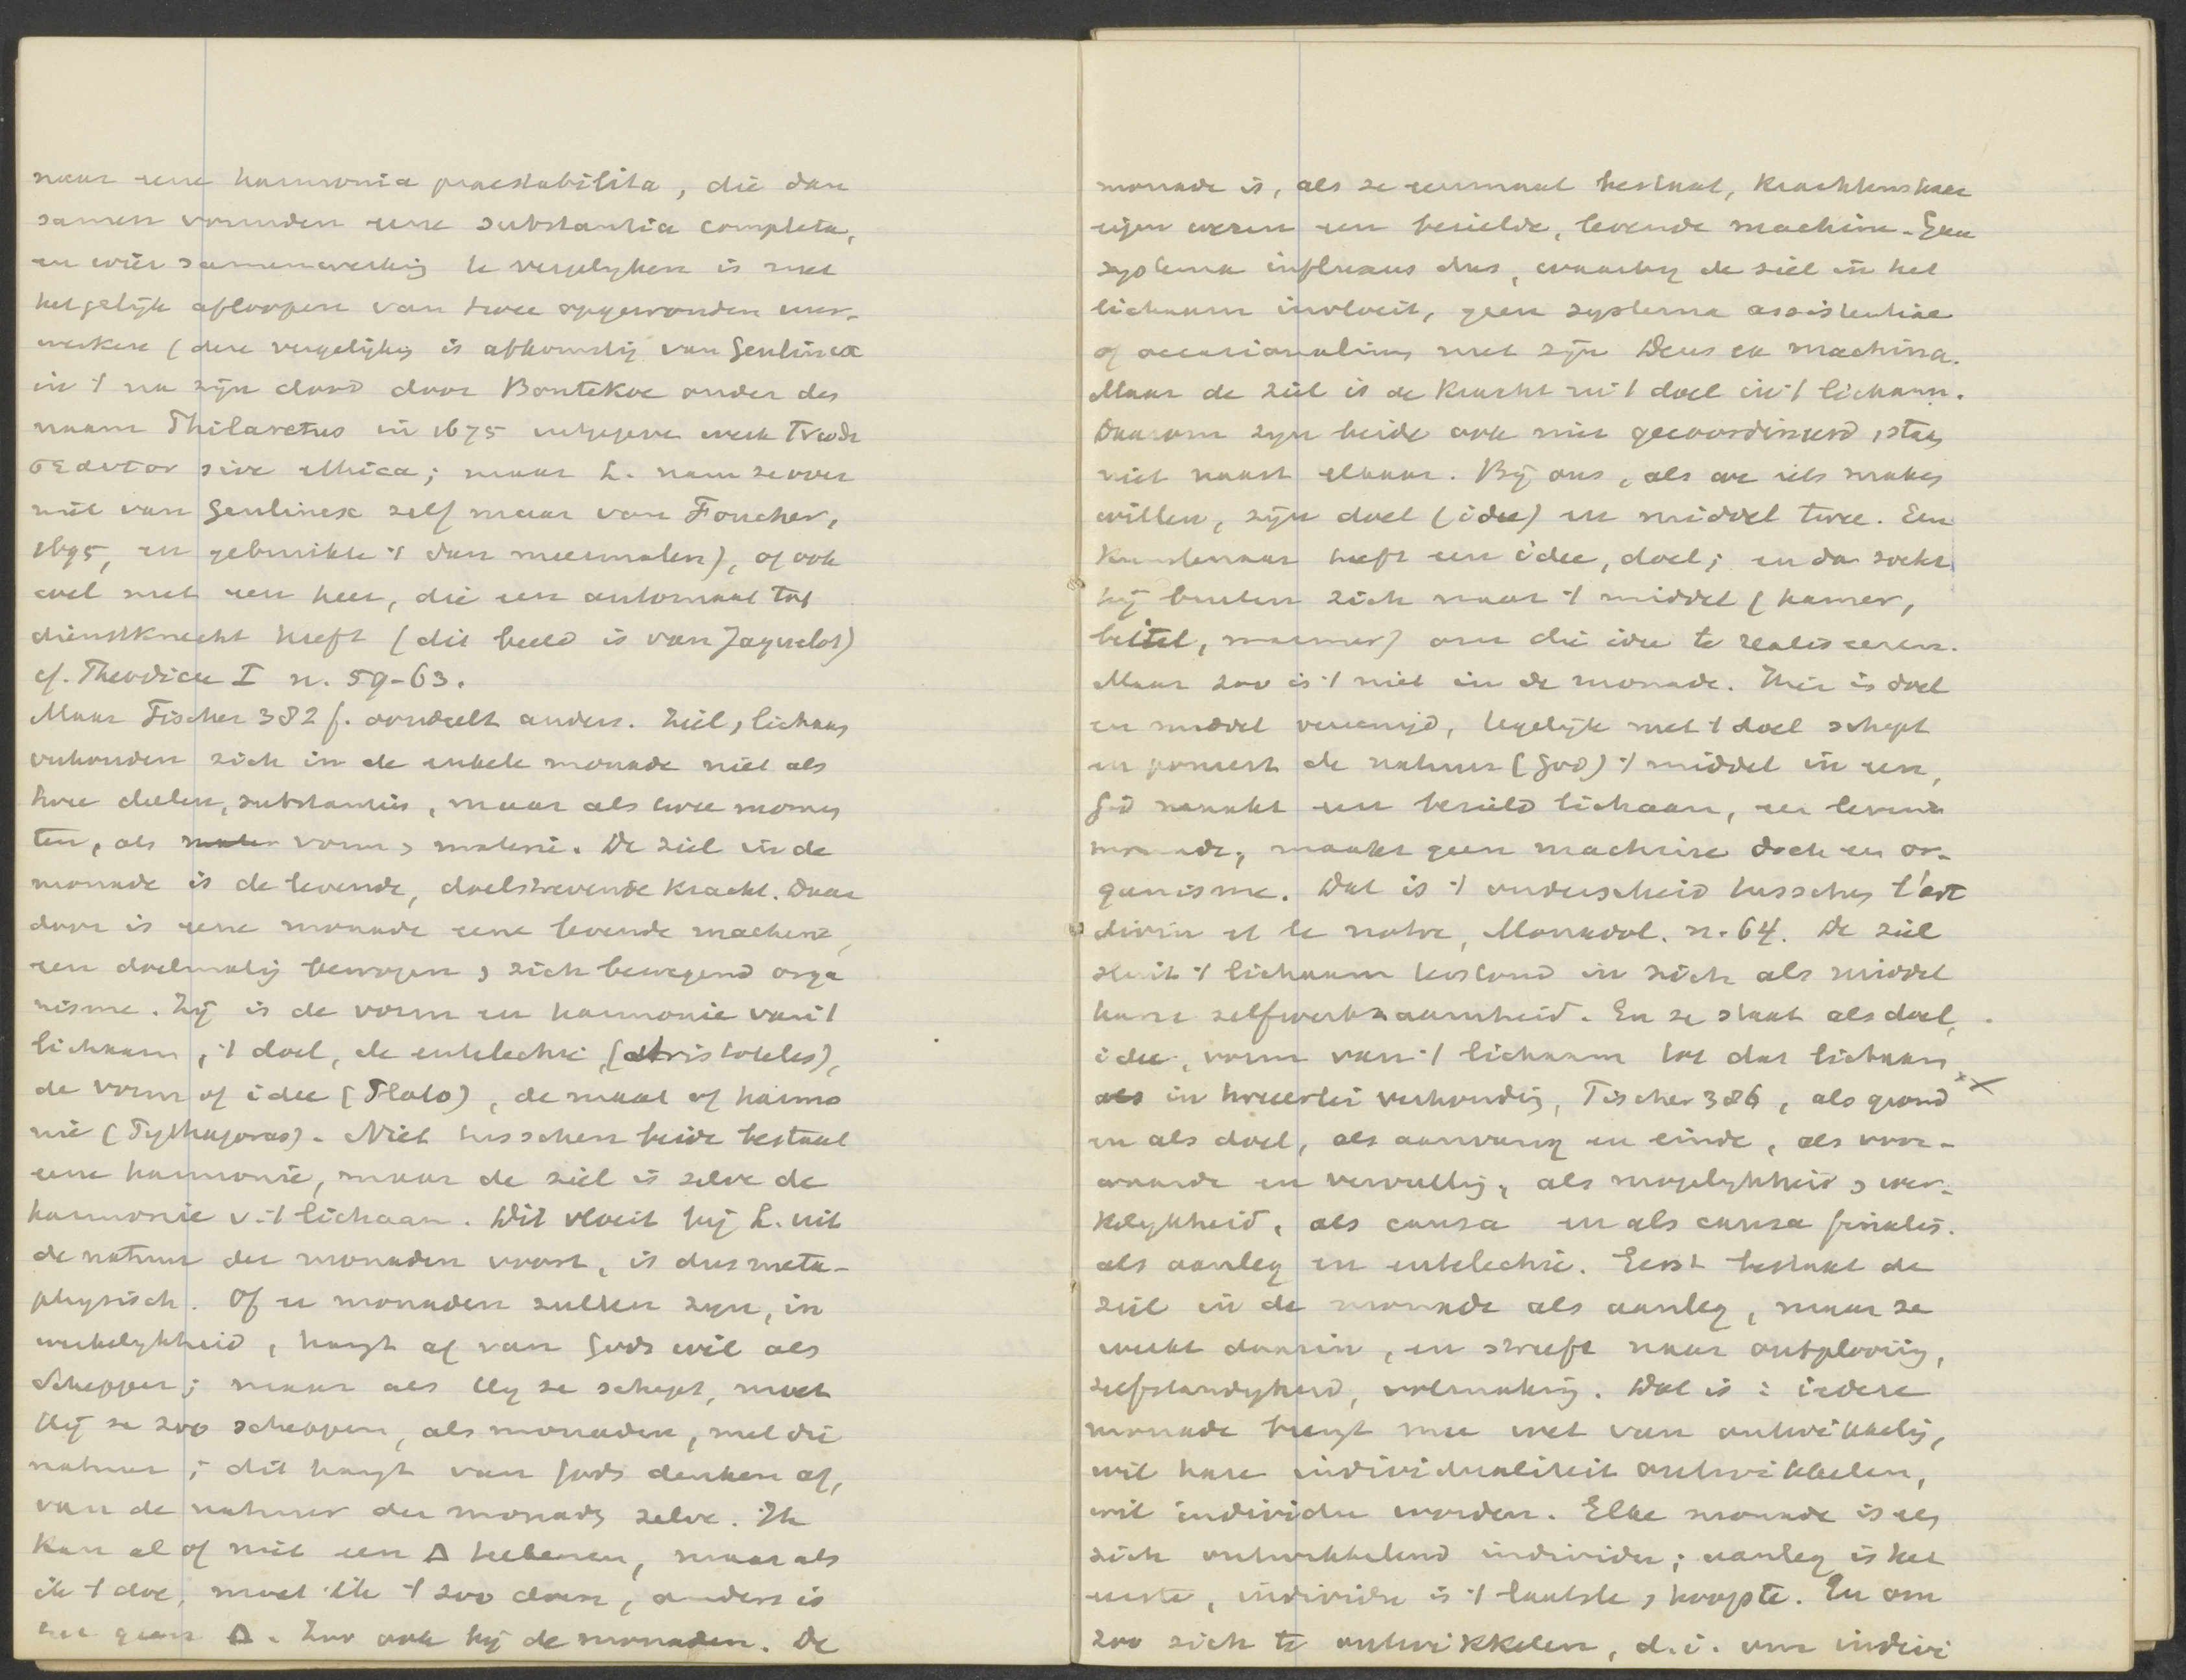 naar eene harmonia praestabilita, die dan
samen vormden eene substantia completa,
en wier samenwerking te vergelyken is met
het gelijk afloopen van twee opgewonden uur-
werken (deze vergelijkg is afkomstig van Geulincx
in 't na zijn dood door Bontekoe onder den
naam Philaretus in 1675 uitgegeven werk Γνωθι
σεαυτον sive Ethica; maar L. nam ze over
niet van Geulincx zelf maar van Foucher,
1695, en gebruikte 't dan meermalen), of ook
wel met een heer, die een automaat tot
dienstknecht heeft (dit beeld is van Jaquelot)
cf. Theodicee I n. 59-63.
Maar Fischer 382 f. oordeelt anders. Ziel, lichaam
verhouden zich in de enkele monade niet als
twee deelen, substantiës, maar als twee momen
ten, als vorm en materie. De ziel in de
monade is de levende, doelstrevende kracht. Daar
door is eene monade eene levende machine,
een doelmatig bewogen en zich bewegend orga
nisme. Zij is de vorm en harmonie van 't
lichaam, 't doel, de entelechie (Aristoteles),
de vorm of idee (Plato), de maat of harmo
nie (Pythagoras). Niet tusschen beide bestaat
eene harmonie, maar de ziel is zelve de
harmonie v. 't lichaam. Dit vloeit bij L. uit
de natuur der monaden voort, is dus meta-
physisch. Of er monaden zullen zyn, in
werkelykheid, hangt af van Gods wil als
Schepper; maar als Hij ze schept, moet
Hij ze zoo scheppen, als monaden, met die
natuur; dit hangt van Gods denken af,
van de natuur der monaden zelve. Ik
kan al of niet een Δ teekenen, maar als
ik 't doe, moet ik 't zoo doen, anders is
het geen Δ. Zoo ook bij de monaden. De
monade is, als ze eenmaal bestaat, krachtens haar
eigen wezen een bezielde, levende machine. Geen
systema influxus dus, waarby de ziel in het
lichaam invloeit, geen systema assistentiae
of occasionalisme met zijn Deus ex machina.
Maar de ziel is de kracht en 't doel in 't lichaam.
Daarom zyn beide ook niet gecoordineerd, staan
niet naast elkaar. Bij ons, als we iets maken
willen, zijn doel (idee) en middel twee. Een
kunstenaar heeft een idee, doel; en dan zoekt
hij buiten zich naar 't middel (hamer,
beitel, marmer) om die idee te realiseeren.
Maar zoo is 't niet in de monade. Hier is doel
en middel vereenigd, tegelijk met 't doel schept
en poneert de natuur (God) 't middel in een,
God maakt een bezield lichaam, een levende
monade, maakt geen machine doch een or-
ganisme. Dat is 't onderscheid tusschen l'art
divin et le notre, Monadol. n. 64. De ziel
sluit 't lichaam in zich als middel
harer zelfwerkzaamheid. En ze staat als doel,
idee, vorm van 't lichaam tot dat lichaam
in tweeerlei verhouding, Fischer 386, als grond
en als doel, als aanvang en einde, als voor-
waarde en vervulling, als mogelykheid en wer-
kelykheid, als causa en als causa finalis.
als aanleg en entelechie. Eerst bestaat de
ziel in de monade als aanleg, maar ze
werkt daarin, en streeft naar ontplooiing,
zelfstandigheid, volmaking. Dat is: iedere
monade brengt mee wet van ontwikkeling,
wil hare individualiteit ontwikkelen,
wil individu worden. Elke monade is een
zich ontwikkelend individu; aanleg is het
eerste, individu is 't laatste en hoogste. En om
zoo zich te ontwikkelen, d.i. om indivi